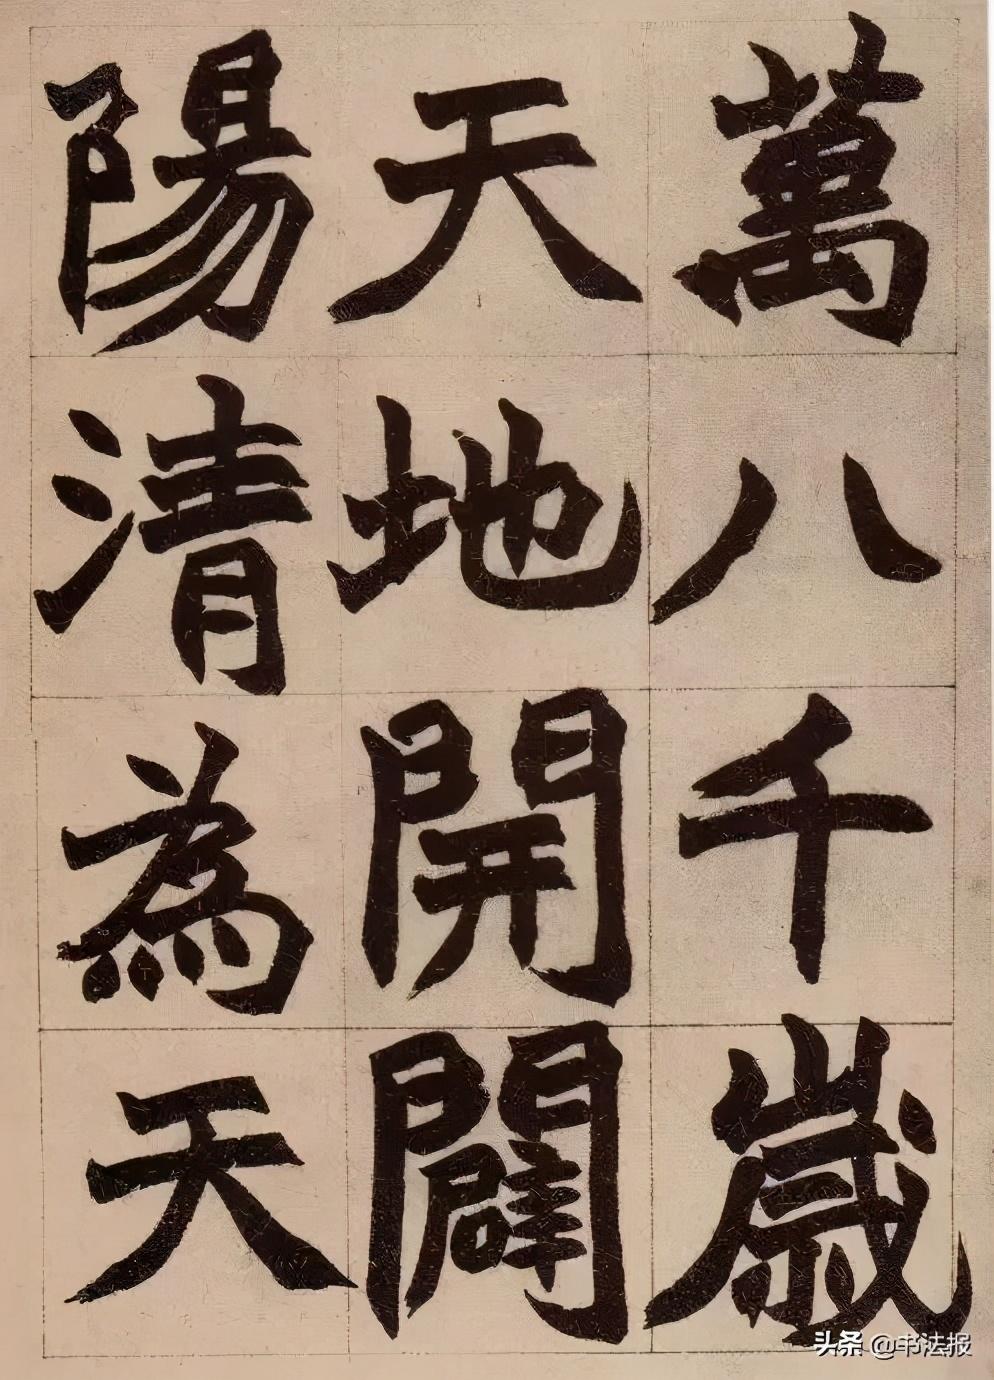 萬八千歲
天地開闢
陽清為天
头条 @书法报